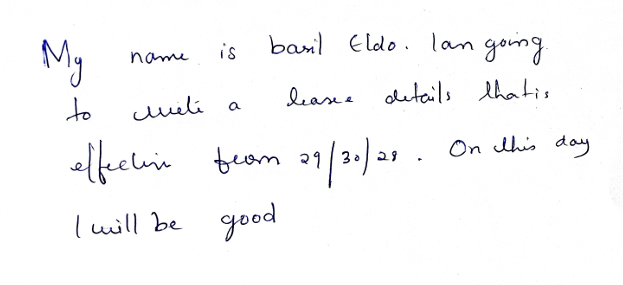 My name is basil Eldo. Ian going
to write a lease details thatis
effective from 29/30/28. On this day
I will be good